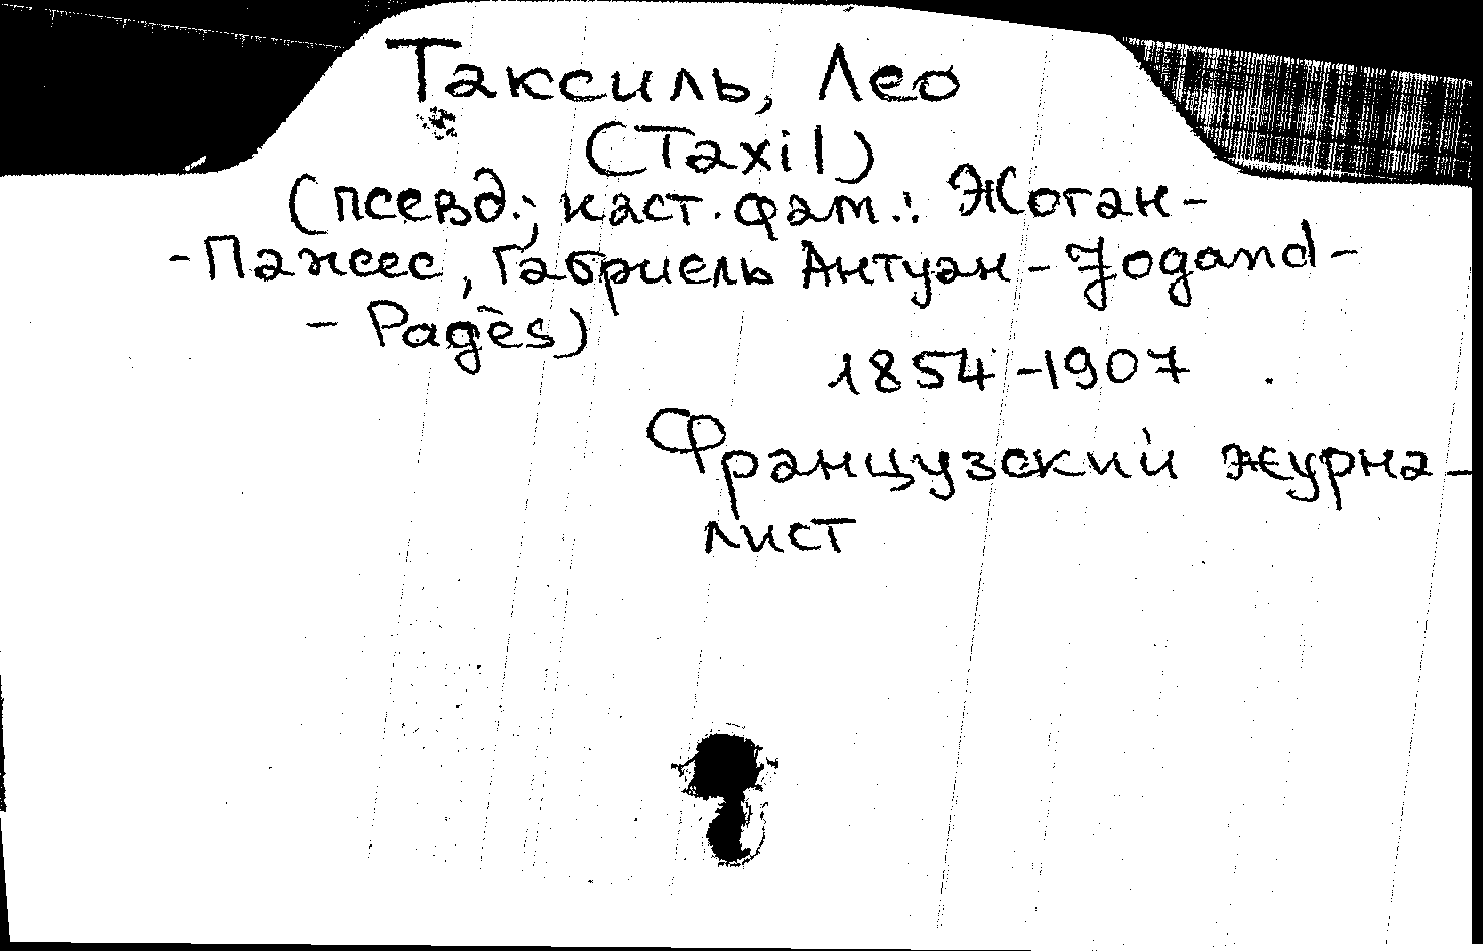 Таксиль, Лео
(Taxil)
(псевд.; наст. фам.: Жоган-
-Пажес, Габриель Антуан - Jogand-
- Pagès)
1854-1907
Французский журна-
лист